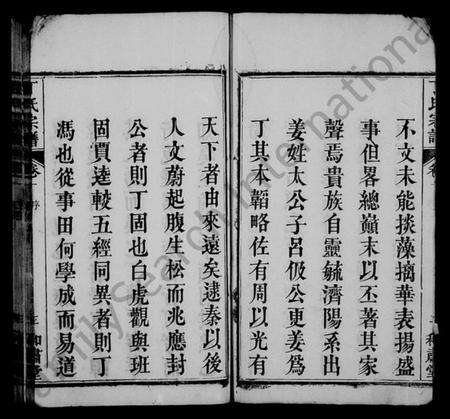 不文未能掞藻摛華表揚盛
事但畧總巔末以丕著其家
聲焉貴族自靈毓濟陽系出
姜姓太公子呂伋公更姜爲
丁其本韜略佐有周以光有
天下者由來遠矣逮秦以後
人文蔚起腹生松而兆應封
公者則丁固也白虎觀與班
固賈逵較五經同異者則丁
馮也從事田何學成而易道
丁氏宗譜
卷 序
三
和肅堂
FamilySearch International